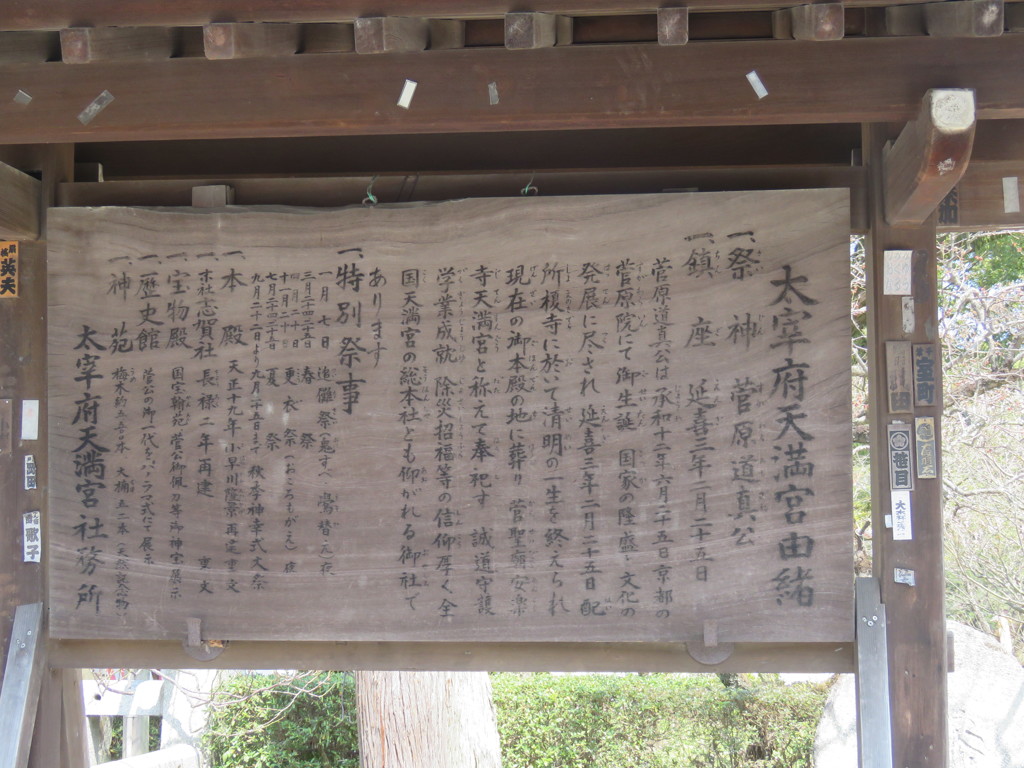 太宰府天満宮由緒
一、祭神 菅原道真公
一、鎮座 延喜三年二月二十五日
菅原道真公は 承和十二年六月二十五日京都の
菅原院にて御生誕 国家の隆盛と文化の
発展に尽され 延喜三年二月二十五日 配
所榎寺に於いて清明の一生を終えられ
現在の御本殿の地に葬り 菅聖廟安楽
寺天満宮と称えて奉祀す 誠道守護
学業成就 除災招福等の信仰厚く全
国天満宮の総本社とも仰がれる御社で
あります
一、特別祭事
一月七日 追儺祭(鬼すべ 鷽替え)夜
三月二十四、二十五日 春祭
十一月二十日 更衣祭
七月二十四、二十五日 夏祭
九月二十二日より九月二十五日まで 秋季神幸式大祭
一、本殿 天正十九年 小早川隆景再建 重文
一、末社志賀社 長禄二年再建 重文
一、宝物殿 国宝翰苑 菅公御佩刀等御神宝展示
一、歴史館 菅公の御一代をパノラマ式にて展示
一、神苑
太宰府天満宮社務所
笹目